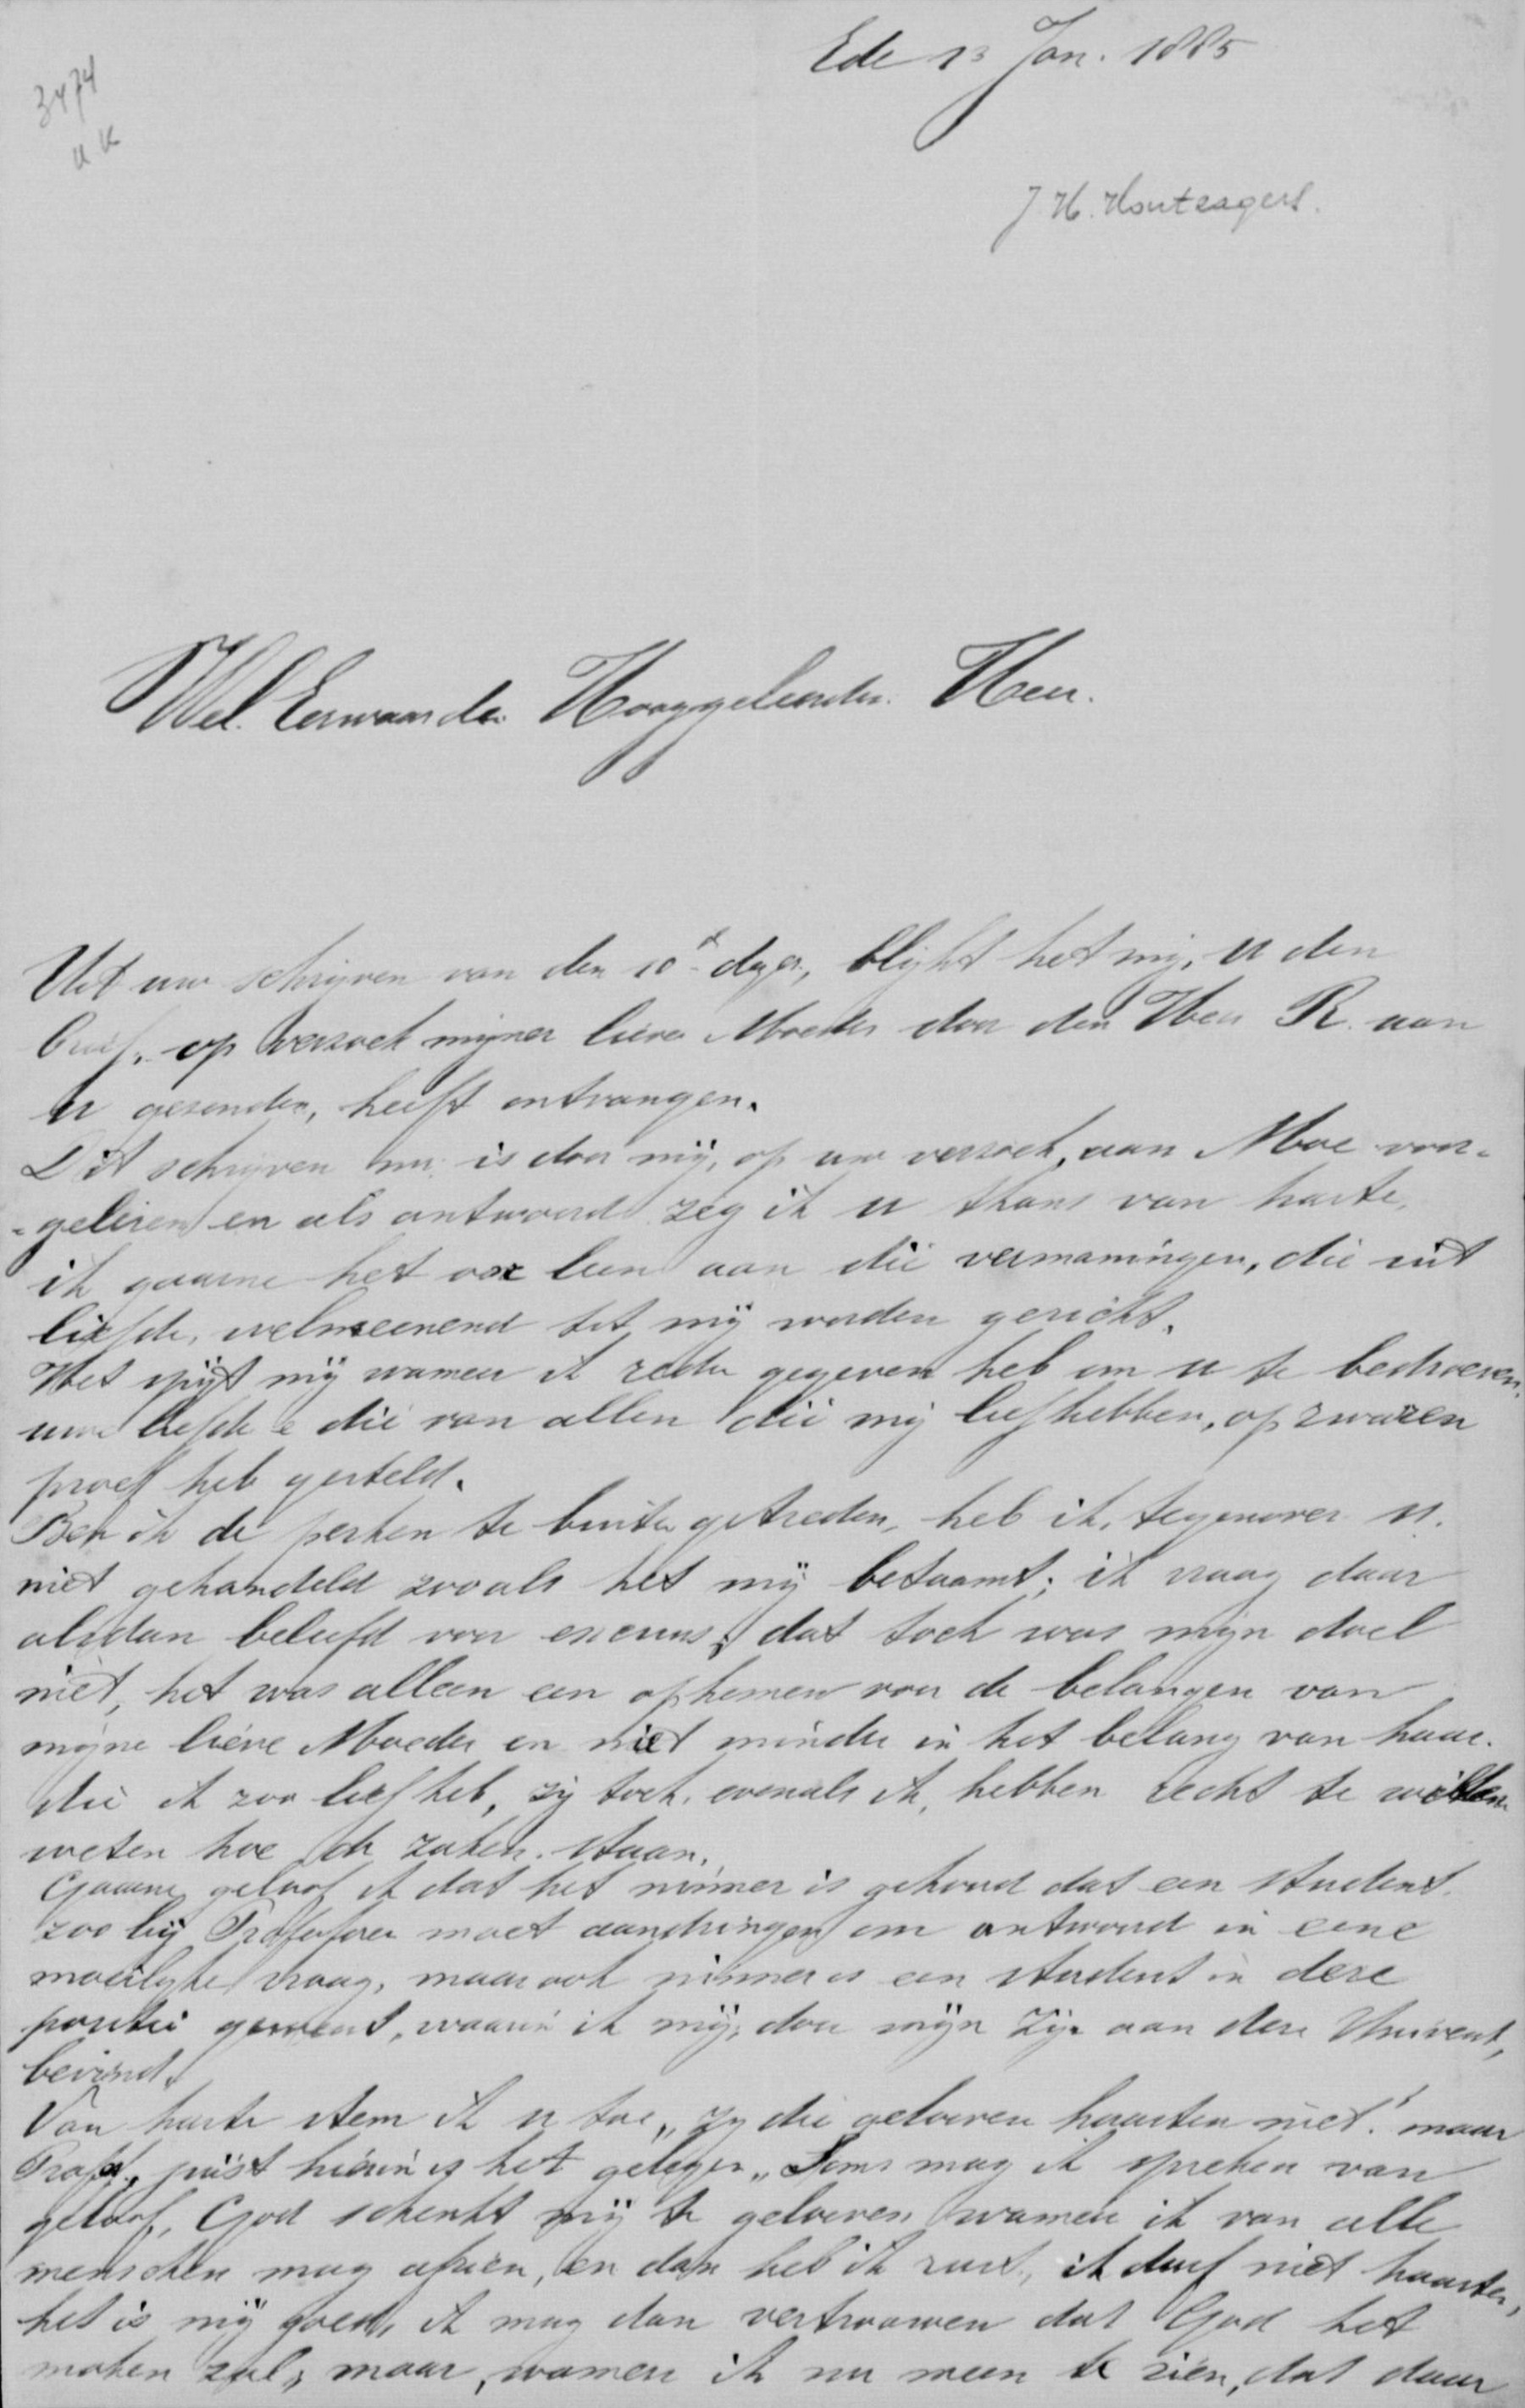 Ede 13 Jan. 1885
3474
UK
J. H. Houtzagers.
Wel. Eerwaarde Hooggeleerde Heer.
Uit uw schrijven van den 10e dezer, blijkt het mij, U den
brief, op verzoek mijner lieve Moeder door den Heer R. aan
U gezonden, heeft ontvangen.
Dit schrijven nu is door mij, op uw verzoek, aan Moe voor-
-gelezen en als antwoord zeg ik U thans van harte,
ik gaarne het oor leen aan die vermaningen, die uit
liefde, welmeenend tot mij worden gericht.
Het spijt mij wanneer ik reden gegeven heb om U te bedroeven,
uwe liefde & die van allen die mij liefhebben, op zwaren
proef heb gesteld.
Ben ik de perken te buiten getreden, heb ik, tegenover U.
niet gehandeld zooals het mij betaamt; ik vraag daar
alsdan beleefd voor excuus; dat toch was mijn doel
niet, het was alleen een opkomen voor de belangen van
mijne lieve Moeder en niet minder in het belang van haar.
die ik zoo lief heb, zij toch, evenals ik, hebben recht te
weten hoe de zaken staan.
Gaarne geloof ik dat het nimmer is gehoord dat een student
zoo bij Professoren moet aandringen om antwoord in eene
moeilijke vraag, maar ook nimmer is een student in deze
positie geweest, waarin ik mij, door mijn zijn aan deze Universt,
bevind.
Van harte stem ik U toe, „zij die gelooven haasten niet." maar
Prof., juist hierin is het gelegen „Soms mag ik spreken van
geloof, God schenkt mij te gelooven wanneer ik van alle
menschen mag afzien, en dan heb ik rust, ik durf niet haasten,
het is mij goed, ik mag dan vertrouwen dat God het
maken zal; maar, wanneer ik nu meen te zien, dat daar